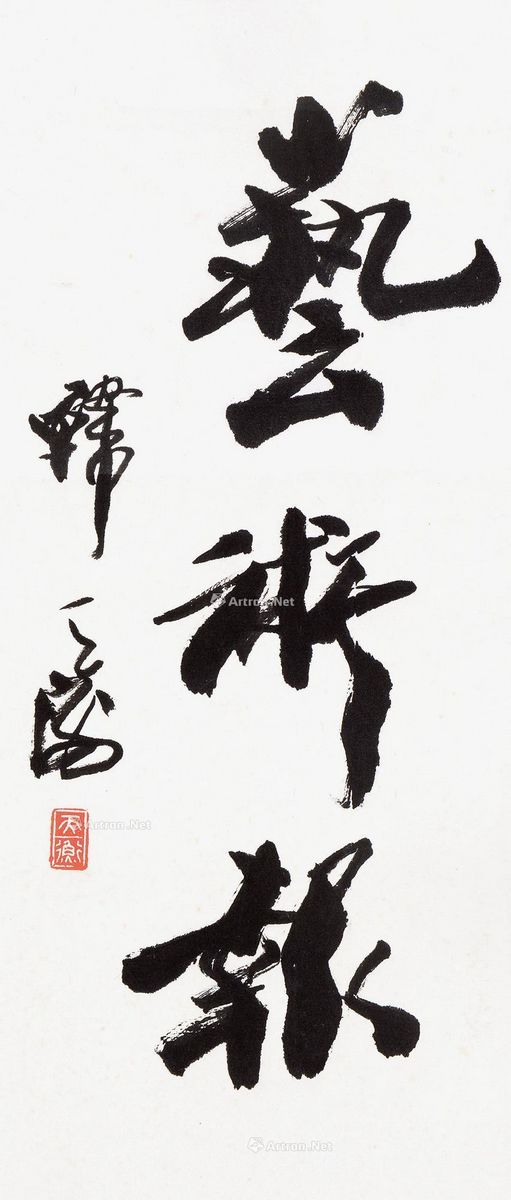 藝術報
韓天衡
天衡
Artron.Net
Artron.Net
Artron.Net